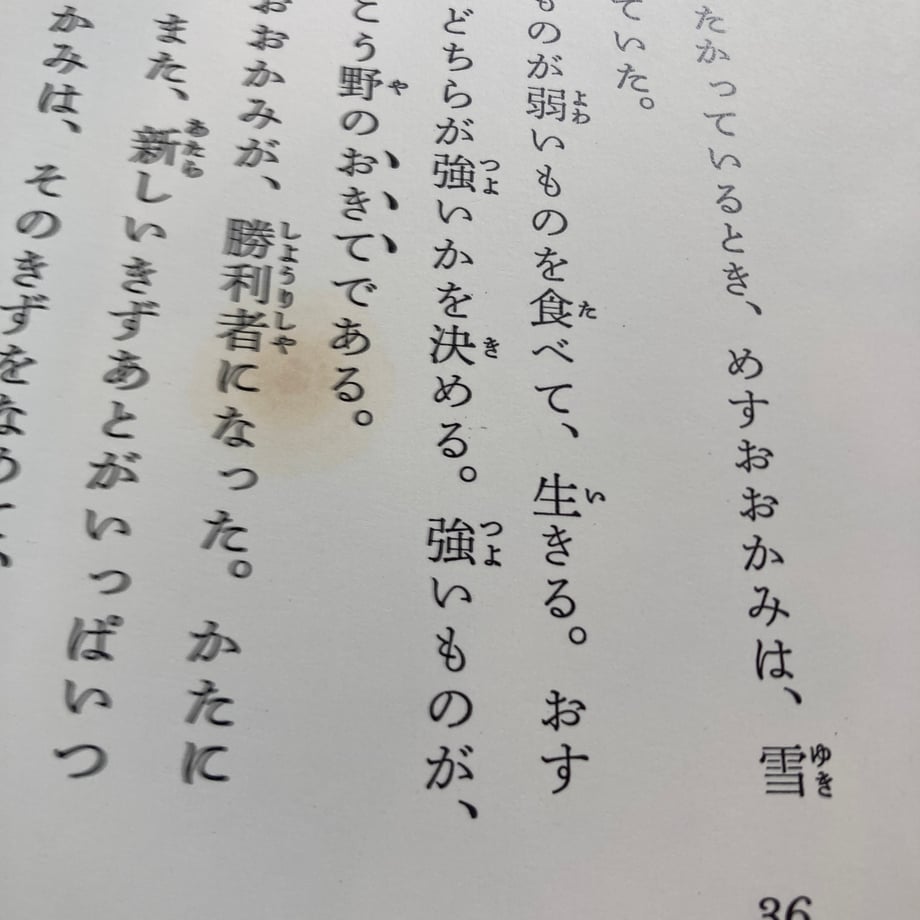 たかっているとき、めすおおかみは、雪
ていた。
ものが弱いものを食べて、生きる。おす
どちらが強いかを決める。強いものが、
とう野のおきてである。
おおかみが、勝利者になった。かたに
また、新しいきずあとがいっぱいつ
かみは、そのきずをなめて、
36